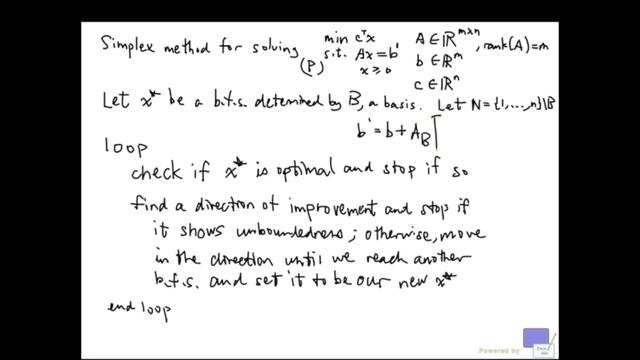 Simplex method for solving (P) min cᵀx A ∈ ℝᵐˣⁿ, rank(A)=m
s.t. Ax = b' b ∈ ℝᵐ
x ≥ 0 c ∈ ℝⁿ
Let x* be a b.f.s. determined by B, a basis. Let N = {1,...,n}\B
b' = b + A_B
loop
check if x* is optimal and stop if so
find a direction of improvement and stop if
it shows unboundedness; otherwise, move
in the direction until we reach another
b.f.s. and set it to be our new x*
end loop
Powered by